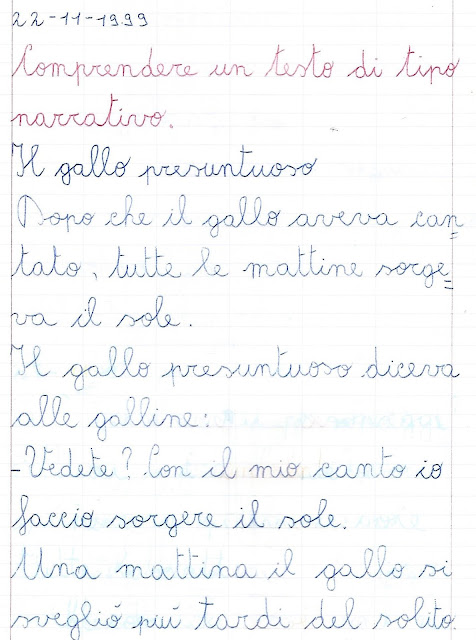 22-11-1999
Comprendere un testo di tipo
narrativo.
Il gallo presuntuoso
Dopo che il gallo aveva can=
tato, tutte le mattine sorge=
va il sole.
Il gallo presuntuoso diceva
alle galline:
-Vedete? Con il mio canto io
faccio sorgere il sole.
Una mattina il gallo si
svegliò più tardi del solito.